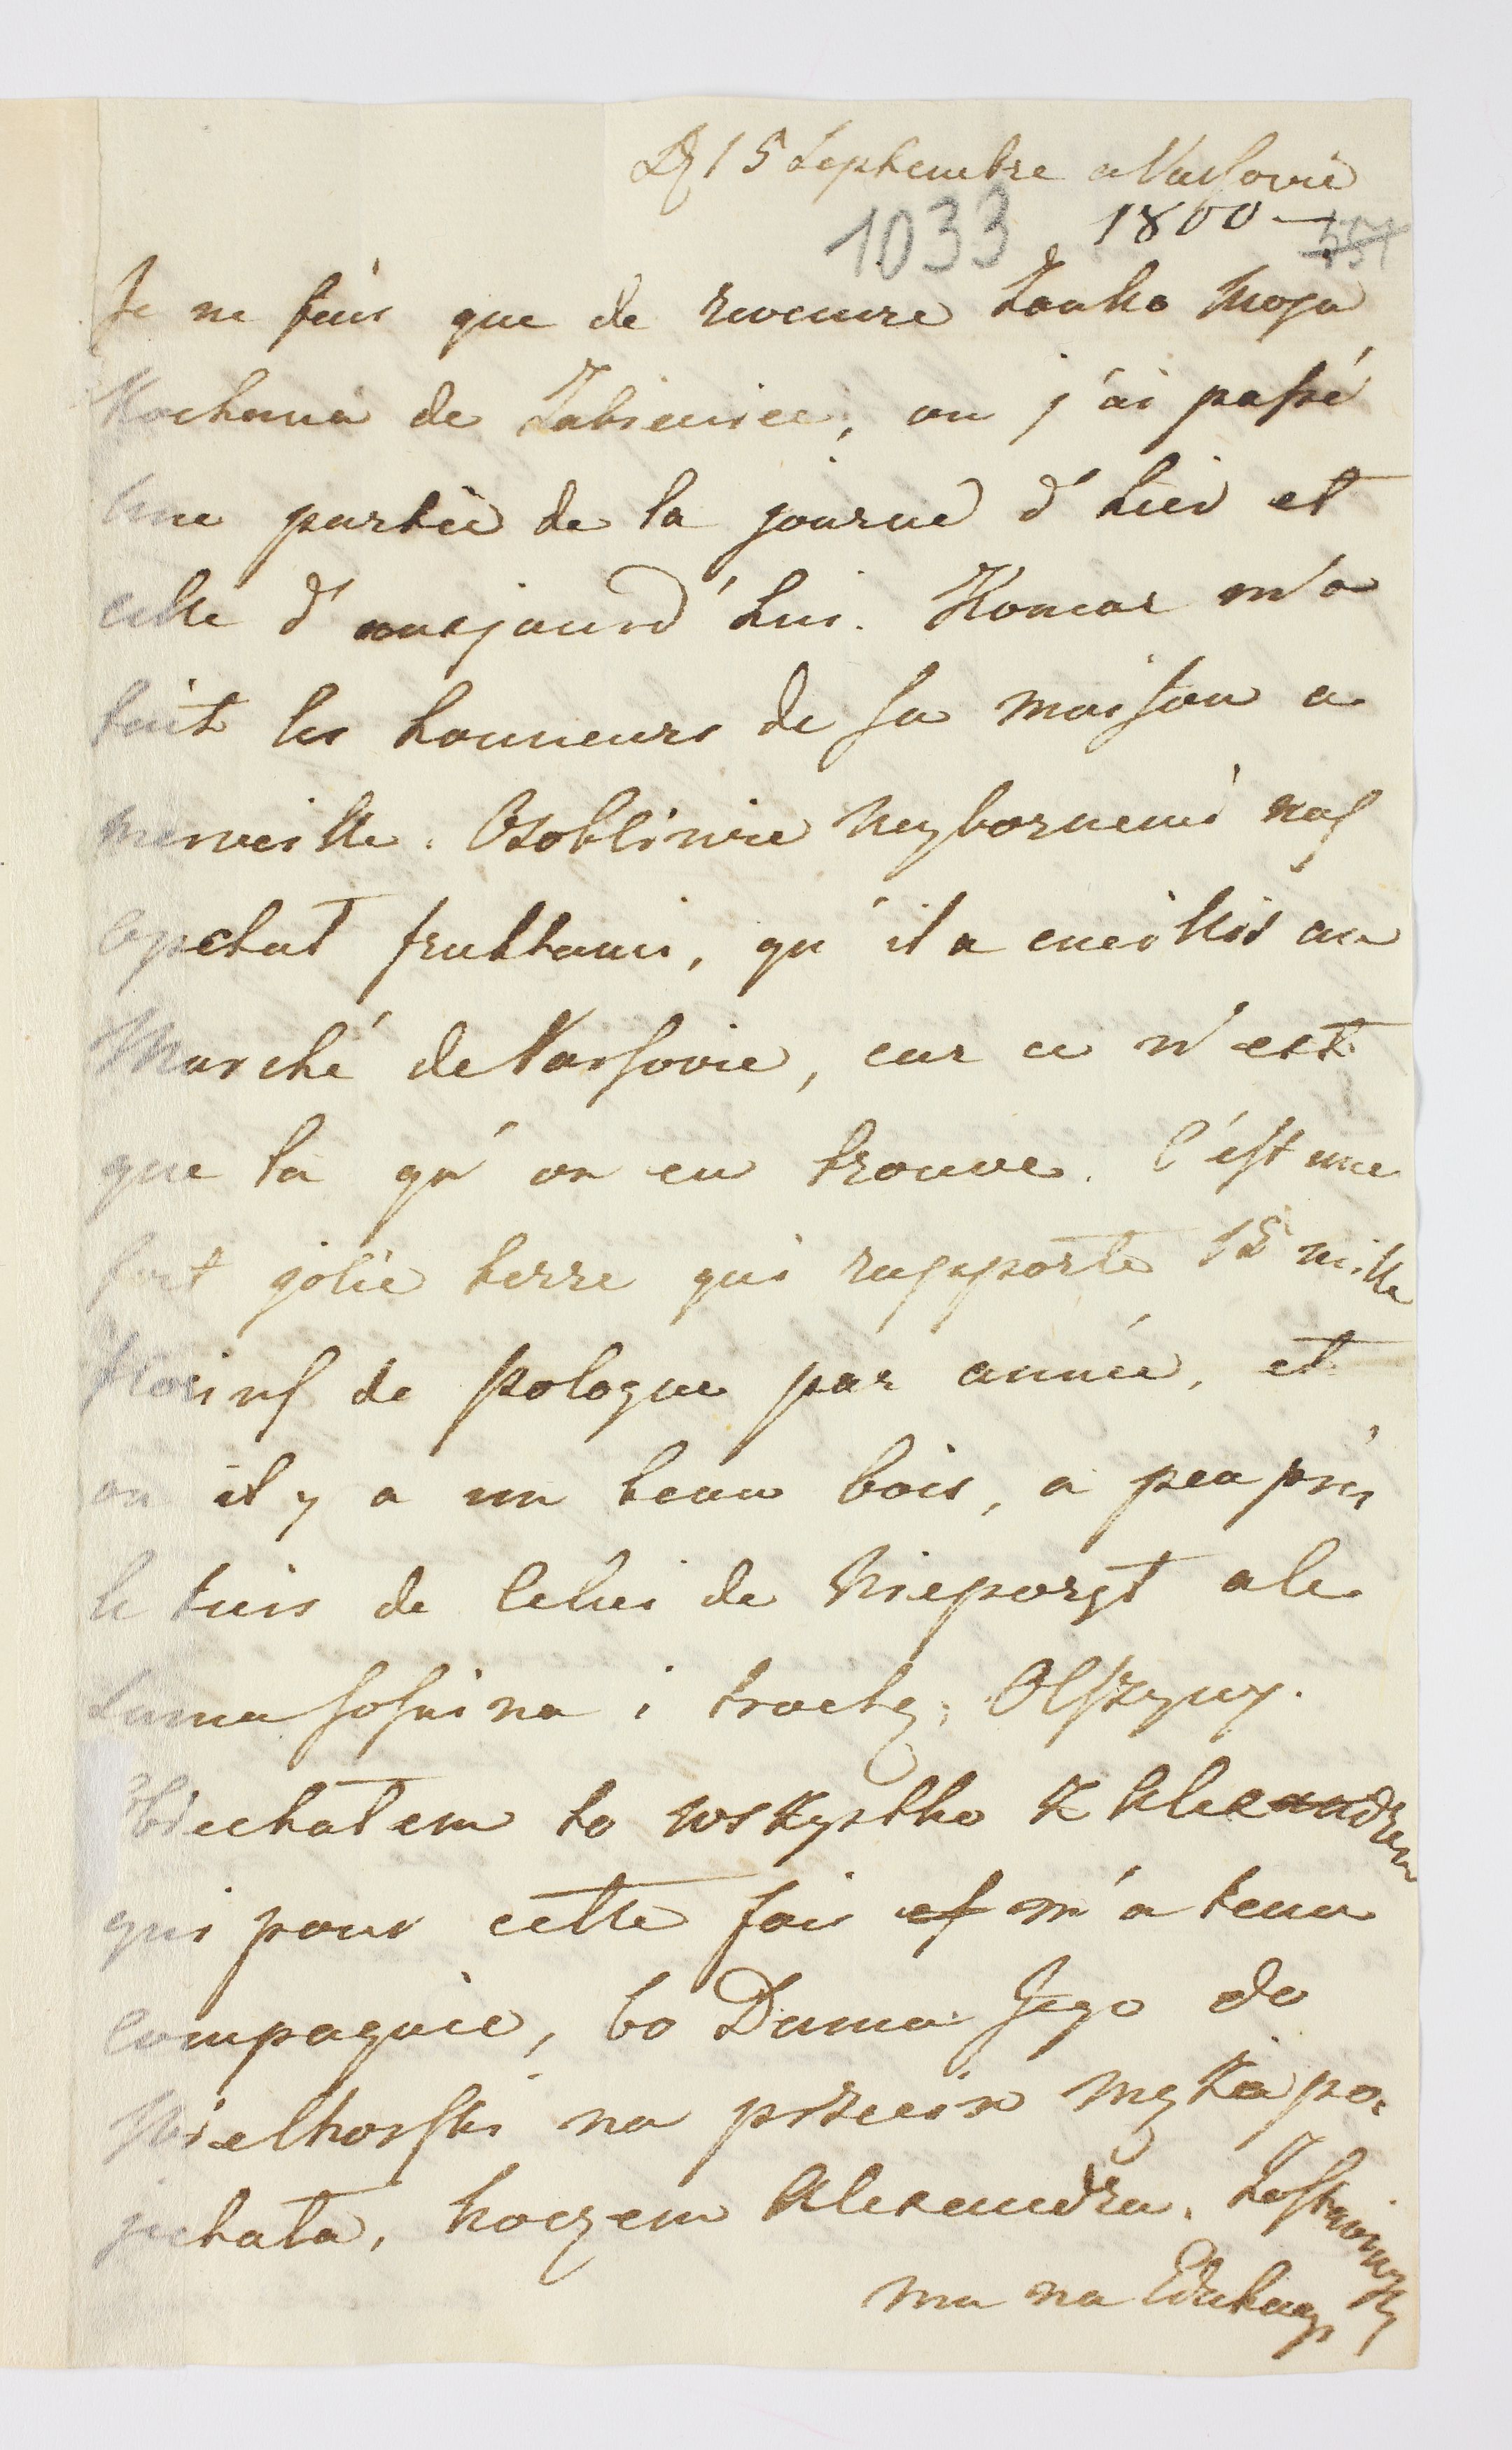 D 15 Septembre a Varsovie
1033 1800 –
Je ne fais que de revenire Żonko Moja
Kochana de Żabieniec, ou j'ai passé
une partie de la journé d'hier et
celle d'aujourd'hui. Komar m'a
fait les honneurs de sa maison a
merveille. Osobliwie Wybornemi nas
opchał fruktami, qu'il a cueillis au
Marché de Varsovie, car ce n'est
que la qu'on en trouve. C'est une
fort jolie terre qui rapporte 15 mille
florins de pologne par année, et
ou il y a un beau bois, a peu près
le tiers de Celui de Nieporęt ale
sama sosnina i trochę Olszyny.
Obiechałem to wszystko z Alexandrem
qui pour cette fois m'a tenu
compagnie, bo Dama Jego do
Wielhorski na przeciw męża po-
jechała, koczem Alexandra.
ma na Edukacyi